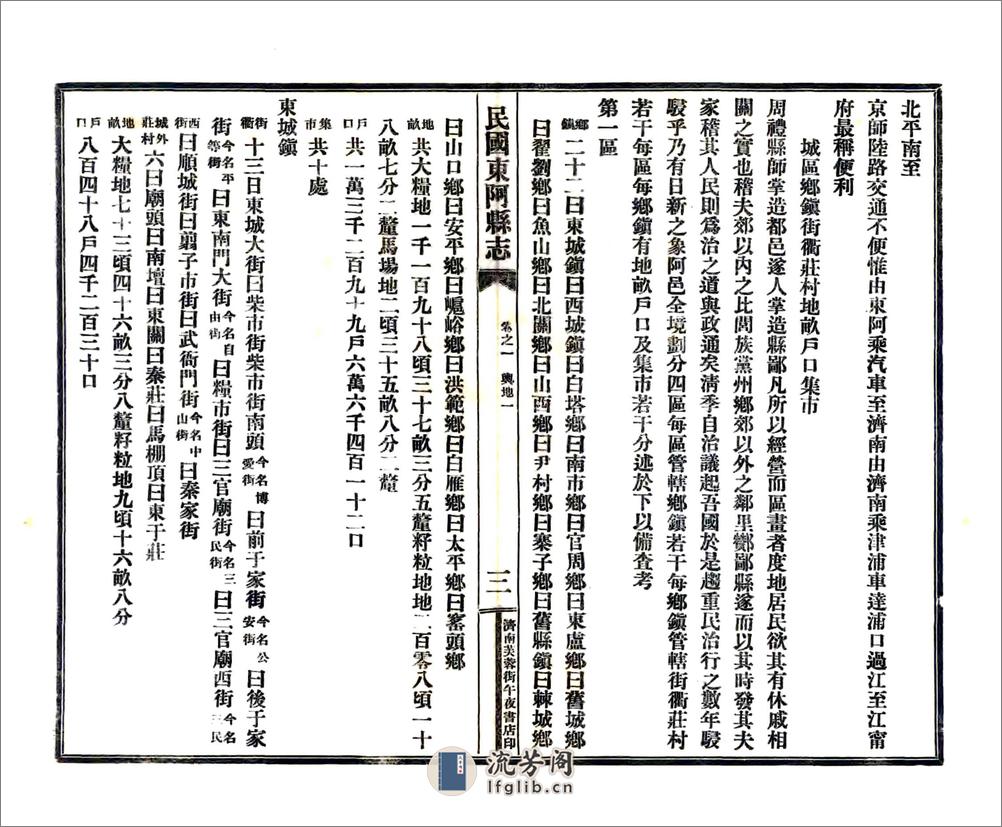 北平南至
京師陸路交通不便惟由東阿乘汽車至濟南由濟南乘津浦車達浦口過江至江甯
府最稱便利
城區鄉鎮街衢莊村地畝戶口集市
周禮縣師掌造都邑遂人掌造縣鄙凡所以經營而區畫者度地居民欲其有休戚相
關之實也稽夫郊以內之比閭族黨州鄉郊以外之鄰里酇鄙縣遂而以其時發其夫
家稽其人民則爲治之道與政通矣清季自治議起吾國於是趨重民治行之數年駸
駸乎乃有日新之象阿邑全境劃分四區每區管轄鄉鎮若干每鄉鎮管轄街衢莊村
若干每區每鄉鎮有地畝戶口及集市若干分述於下以備查考
第一區
鄉鎮二十二曰東城鎮曰西城鎮曰白塔鄉曰南市鄉曰官周鄉曰東盧鄉曰舊城鄉
曰翟劉鄉曰魚山鄉曰北關鄉曰山西鄉曰尹村鄉曰寨子鄉曰舊縣鎮曰棘城鄉
民國東阿縣志 卷之一 輿地一 三 濟南芙蓉街午夜書店印
曰山口鄉曰安平鄉曰嶇峪鄉曰洪範鄉曰白雁鄉曰太平鄉曰窰頭鄉
地畝共大糧地一千一百九十八頃三十七畝三分五釐籽粒地地二百零八頃一十
八畝七分二釐馬場地二頃三十五畝八分二釐
戶口共一萬三千二百九十九戶六萬六千四百一十二口
集市共十處
東城鎮
街衢十三曰東城大街曰柴市街柴市街南頭今名博愛街曰前于家街今名公安街曰後于家
街今名平等街曰東南門大街今名自由街曰糧市街曰三官廟街今名三民街曰三官廟西街今名三民
西街曰順城街曰翦子市街曰武衙門街今名中山街曰秦家街
城外莊村六曰廟頭曰南壇曰東關曰秦莊曰馬棚頂曰東于莊
地畝大糧地七十三頃四十六畝三分八釐籽粒地九頃十六畝八分
戶口八百四十八戶四千二百三十口
流芳阁
lfglib.cn